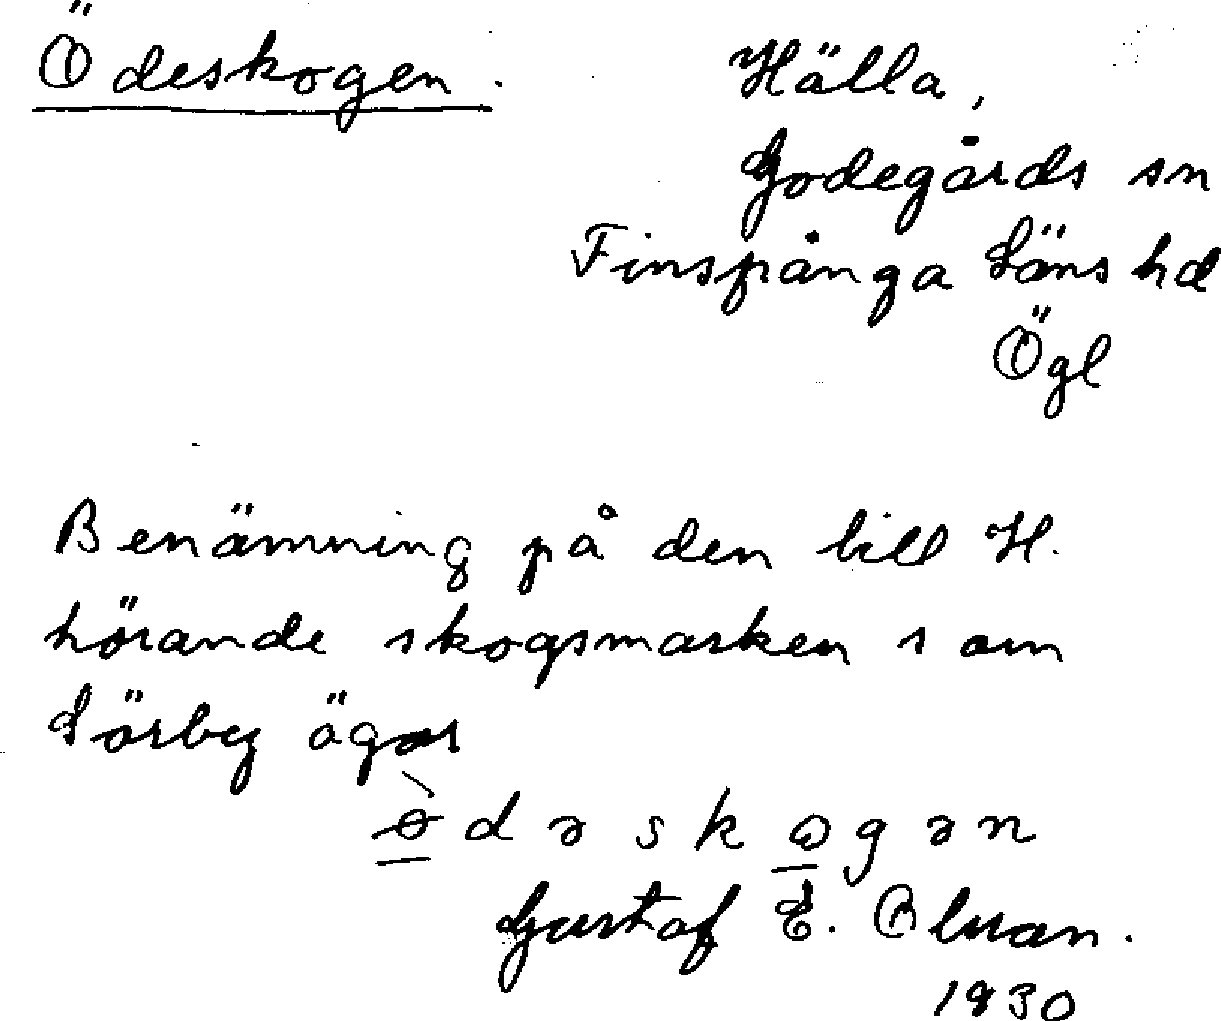 Ödeskogen.
Hälla,
Godegårds sn
Finspånga Läns hd
Ögl
Benämning på den till H.
hörande skogsmarken som
Sörby äger
Gustaf E.
1930